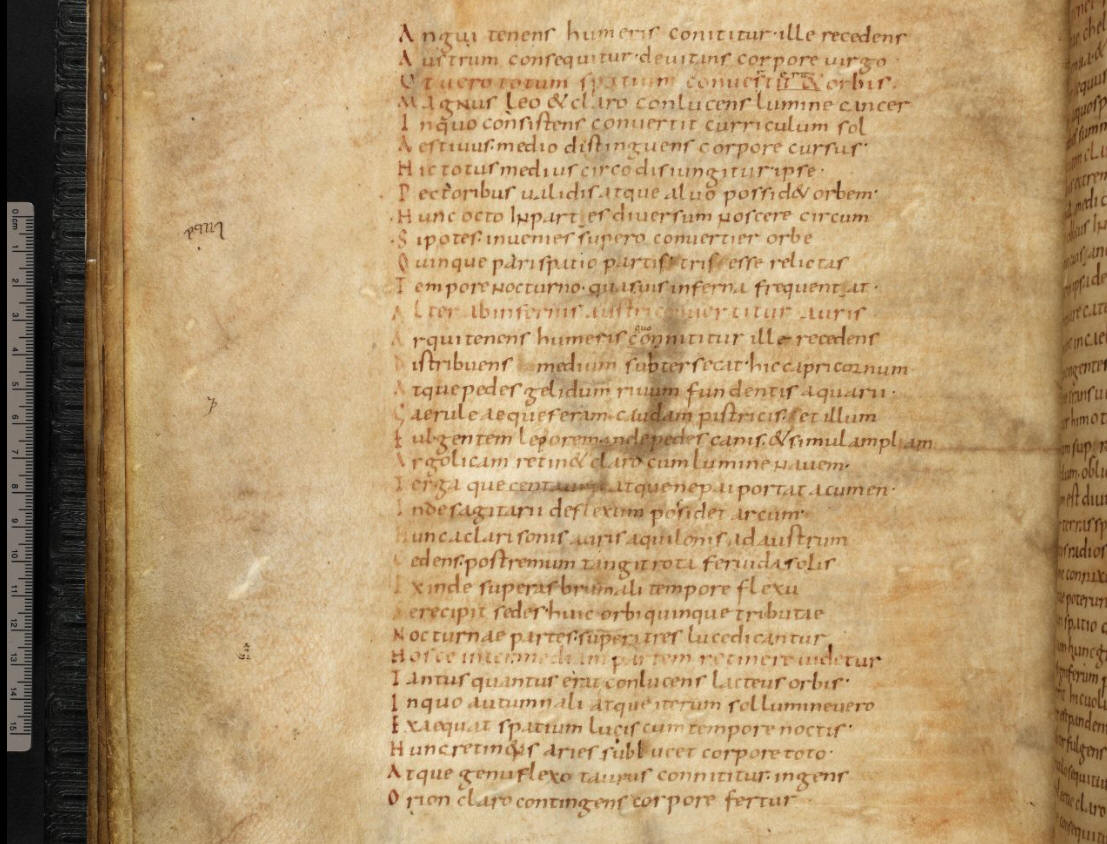 Angui tenens humeris conititur·ille recedens
Austrum consequitur·devitans corpore virgo·
At vero totum spatium convestit & orbis·
Magnus leo & claro conlucens lumine cancer
Inquo consistens convertit curriculum sol
Aestivus·medio distinguens corpore cursus·
Hic totus medius circo disiungitur ipse·
Pectoribus validis atque alvo possid& orbem·
Hunc octo inpartes diversum noscere circum
Si potes·invenies supero convertier orbe
Quinque pari spatio partis·tris esse relictas
Tempore nocturno·quasvis inferna frequentat·
Alter ab infernis austris convertitur auris
Arquitenens humeris quo connititur ille recedens
Distribuens medium subter secat·hic capricornum
Atque pedes gelidum rivum fundentis aquarii·
Caeruleaeque feram caudam pistricis·et illum
Fulgentem leporem inde pedes canis·& simul amplam
Argolicam retin& claro cum lumine navem·
Terga que centauri atque nepai portat acumen·
Inde sagitarii deflexum posidet arcum·
Hunc a clarisonis auris aquilonis ad austrum
Cedens·postremum tangit rota fervida solis
Exinde superas brumali tempore flexu
Se recipit sedes·huic orbi quinque tributae
Nocturnae partes·supera tres luce dicantur
Hosce inter mediam partem retinere videtur
Tantus quantus erat conlucens lacteus orbis·
Inquo autumnali atque iterum sol lumine vero
Exaequat spatium lucis cum tempore noctis·
Hunc retinens aries sublucet corpore toto·
Atque genu flexo taurus connititur·ingens
Orion claro contingens corpore fertur